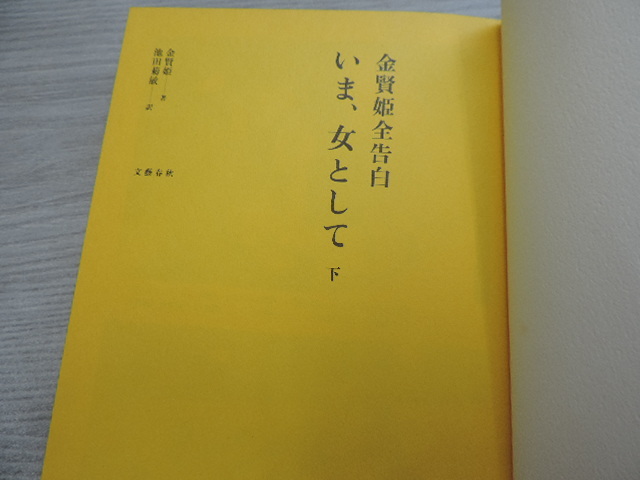 金賢姫全告白
いま、女として
下
金賢姫──著
池田菊敏──訳
文藝春秋